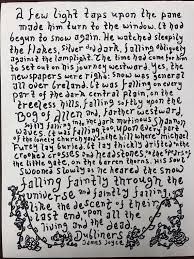 A few light taps upon the pane
made him turn to the window. It had
begun to snow again. He watched sleepily
the flakes, silver and dark, falling obliquely
against the lamplight. The time had come for him
to set out on his journey westward. Yes, the
newspapers were right: snow was general
all over Ireland. It was falling on every
part of the dark central plain, on the
treeless hills, falling softly upon the
Bog of Allen and, farther westward,
softly falling into the dark mutinous Shannon
waves. It was falling too, upon every part
of the lonely churchyard where Michael
Furey lay buried. It lay thickly drifted on the
crooked crosses and headstones, on the spears of
the little gate, on the barren thorns. His soul
swooned slowly as he heard the snow
falling faintly through the
universe and faintly falling,
like the descent of their
last end, upon all the
living and the dead.
Dubliners
James Joyce